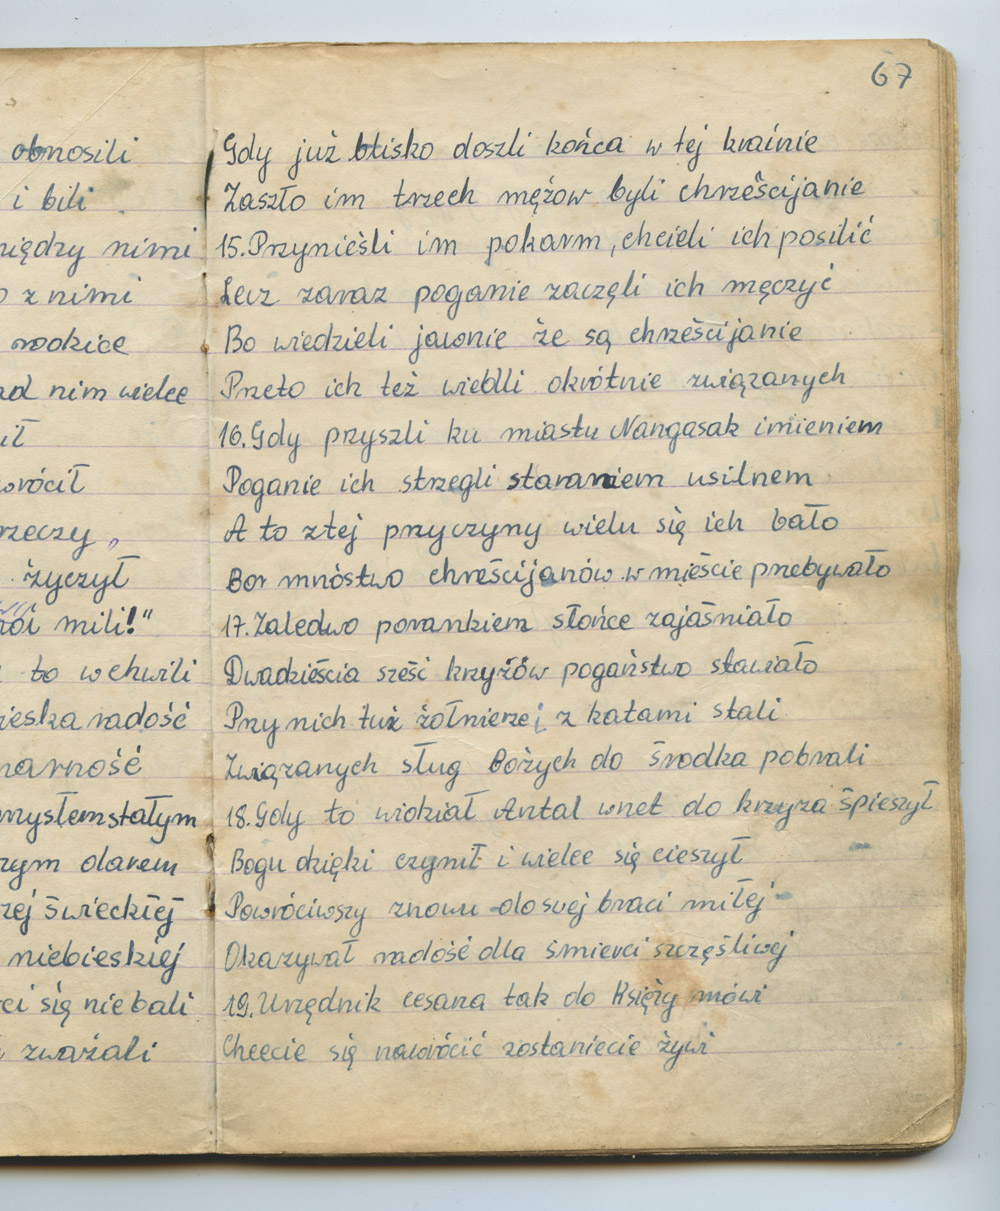 67
obnosili
i bili
między nimi
z nimi
rodzice
nad nim wielce
wrócił
rzeczy "
życzył
mili!"
to w chwili
radość
marność
mysłem stałym
darem
świeckiej
niebieskiej
się nie bali
zważali
Gdy już blisko doszli końca w tej krainie
Zaszło im trzech mężow byli chrześcijanie
15. Przynieśli im pokarm, chcieli ich posilić
Lecz zaraz poganie zaczęli ich męczyć
Bo wiedzieli jawnie że są chrześcijanie
Przeto ich też wiedli okrótnie związanych
16. Gdy pryszli ku miastu Nangasak imieniem
Poganie ich strzegli staraniem usilnem
A to z tej przyczyny wielu się ich bało
Bo mnóstwo chreścijanów w mieście przebywało
17. Zaledwo porankiem słońce zajaśniało
Dwadzieścia sześć krzyżów pogaństwo stawiało
Przy nich tuż żołnierze i z katami stali
Związanych sług Bożych do środka pobrali
18. Gdy to widział Antal wnet do krzyża śpieszył
Bogu dzięki czynił i wielce się cieszył
Powróciwszy znowu do swej braci miłej
Okazywał radość dla śmierci szczęśliwej
19. Urzędnik cesarza tak do Księży mówi
Chcecie się nawrócić zostaniecie żywi